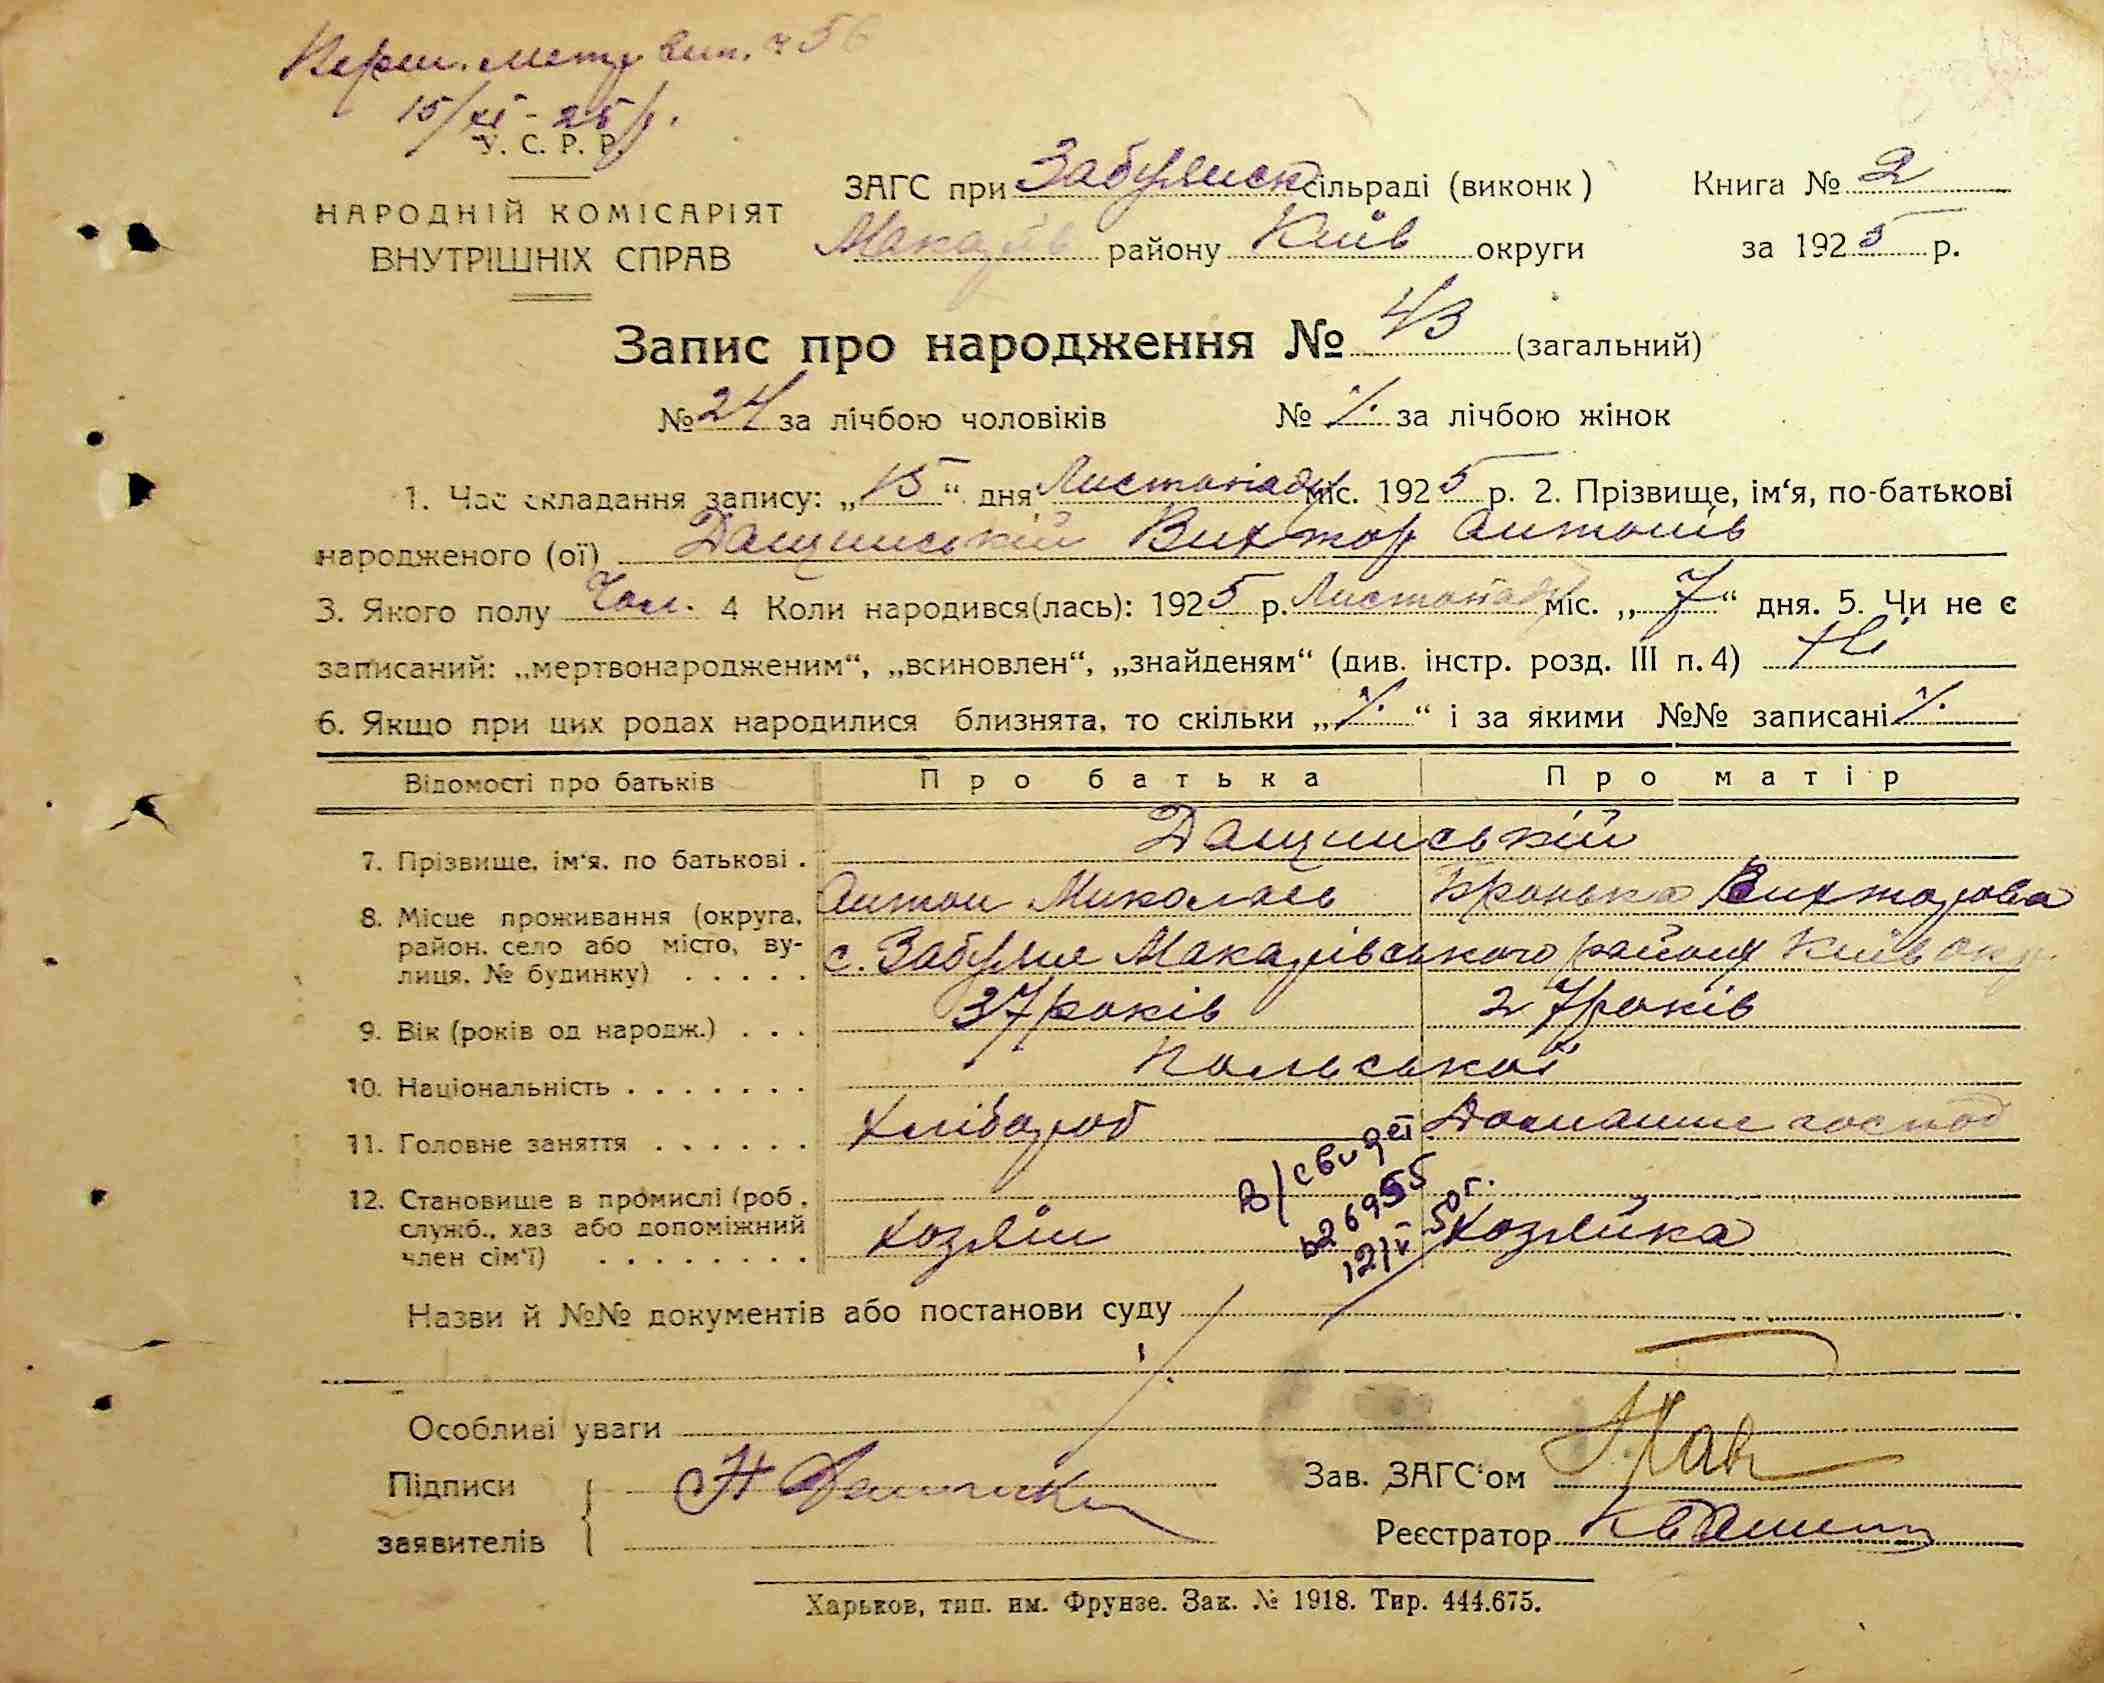 15/XI - 25 р.
У. С. Р. Р.
НАРОДНІЙ КОМІСАРІЯТ
ВНУТРІШНІХ СПРАВ
ЗАГС при Забуянск сільраді (виконк)
Макарів району Київ округи
Книга № 2
за 1925 р.
Запис про народження № 43 (загальний)
№ 24 за лічбою чоловіків № ⁒ за лічбою жінок
1. Час складання запису: „15“ дня Листопаду міс. 1925 р. 2. Прізвище, ім‘я, по-батькові
народженого (ої) Дащинській Вихтор Антонів
3. Якого полу Чол. 4 Коли народився(лась): 1925 р. Листопаду міс. „7“ дня. 5. Чи не є
записаний: „мертвонародженим“, „всиновлен“, „знайденям“ (див. інстр. розд. III п. 4) Ні
6. Якщо при цих родах народилися близнята, то скільки „⁒“ і за якими №№ записані ⁒
Відомості про батьків Про батька Про матір
Дащинській
7. Прізвище, ім‘я, по батькові .
Антон Миколаєв Бронька Вихторова
8. Місце проживання (округа,
район, село або місто, ву-
лиця, № будинку) . . . . .
с. Забуяне Макарівського району Київ окр.
9. Вік (років од народж.) . . . 37 років 27 років
10. Національність . . . . . . . Польської
11. Головне заняття . . . . . . Хлібороб Домашнє господ
12. Становище в промислі (роб.,
служб., хаз або допоміжний
член сім‘ї) . . . . . . . .
Хозяїн Хозяйка
В/свидет
526955
12/V 50 г.
Назви й №№ документів або постанови суду
Особливі уваги
Підписи
заявителів
Зав. ЗАГС‘ом
Реєстратор
Харьков, тип. им. Фрунзе. Зак. № 1918. Тир. 444.675.